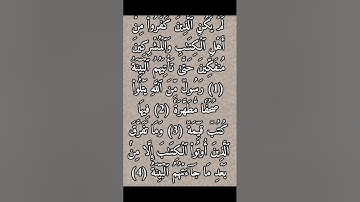 لَمْ يَكُنِ ٱلَّذِينَ كَفَرُوا۟ مِنْ
أَهْلِ ٱلْكِتَـٰبِ وَٱلْمُشْرِكِينَ
مُنفَكِّينَ حَتَّىٰ تَأْتِيَهُمُ ٱلْبَيِّنَةُ
(1) رَسُولٌ مِّنَ ٱللَّهِ يَتْلُوا۟
صُحُفًا مُّطَهَّرَةً (2) فِيهَا
كُتُبٌ قَيِّمَةٌ (3) وَمَا تَفَرَّقَ
ٱلَّذِينَ أُوتُوا۟ ٱلْكِتَـٰبَ إِلَّا مِنۢ
بَعْدِ مَا جَآءَتْهُمُ ٱلْبَيِّنَةُ (4)